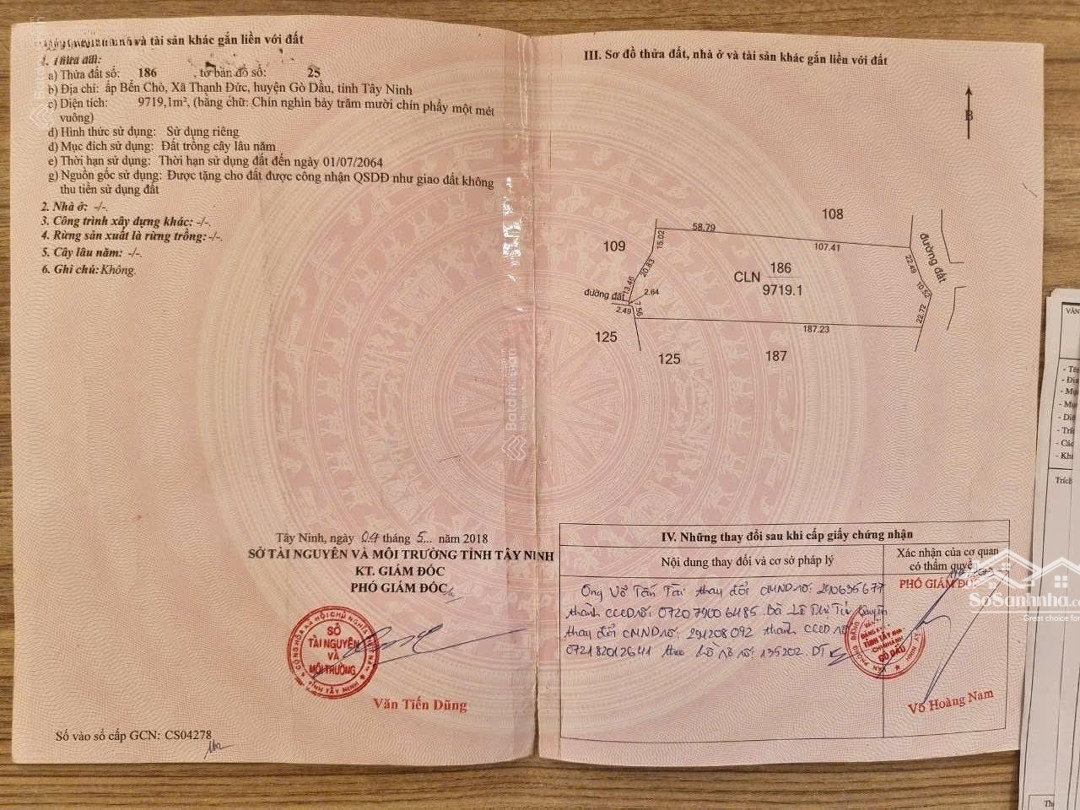 và tài sản khác gắn liền với đất
1. Thửa đất:
a) Thửa đất số: 186 , tờ bản đồ số: 25
b) Địa chỉ: ấp Bến Chò, Xã Thạnh Đức, huyện Gò Dầu, tỉnh Tây Ninh
c) Diện tích: 9719,1m², (bằng chữ: Chín nghìn bảy trăm mười chín phẩy một mét
vuông)
d) Hình thức sử dụng: Sử dụng riêng
đ) Mục đích sử dụng: Đất trồng cây lâu năm
e) Thời hạn sử dụng: Thời hạn sử dụng đất đến ngày 01/07/2064
g) Nguồn gốc sử dụng: Được tặng cho đất được công nhận QSDĐ như giao đất không
thu tiền sử dụng đất
2. Nhà ở: -/-.
3. Công trình xây dựng khác: -/-.
4. Rừng sản xuất là rừng trồng: -/-.
5. Cây lâu năm: -/-.
6. Ghi chú: Không.
Tây Ninh, ngày 04 tháng 5 năm 2018
SỞ TÀI NGUYÊN VÀ MÔI TRƯỜNG TỈNH TÂY NINH
KT. GIÁM ĐỐC
PHÓ GIÁM ĐỐC
SỞ
TÀI NGUYÊN
VÀ
MÔI TRƯỜNG
TỈNH TÂY NINH
Văn Tiến Dũng
Số vào sổ cấp GCN: CS04278
Batdongsan
III. Sơ đồ thửa đất, nhà ở và tài sản khác gắn liền với đất
B
108
109
58.79
107.41
15.02
20.83
13.46
2.64
7.56
2.49
đường đất
CLN 186
9719.1
22.49
10.52
22.72
đường đất
187.23
125
125
187
IV. Những thay đổi sau khi cấp giấy chứng nhận
Nội dung thay đổi và cơ sở pháp lý
Xác nhận của cơ quan
có thẩm quyền
Ông Võ Tấn Tài thay đổi CMND số: 290635677
thành CCCD số: 072079006485. Bà Lê Thị Tú
thay đổi CMND số: 291208092 thành CCCD số
072182012641 theo hồ sơ số: 135202.
PHÓ GIÁM ĐỐC
GÒ DẦU
Võ Hoàng Nam
SoSanhnha.com
Great choice for
VĂN
- Mục
- Mục
- Diện
- Các
Trích